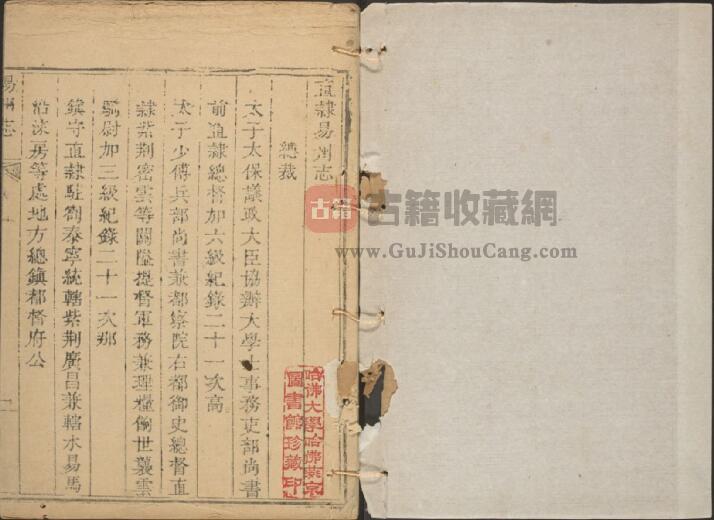 直隸易州志
總裁
太子太保議政大臣協辦大學士事務吏部尚書
前直隸總督加六級紀錄二十一次高
太子少傅兵部尚書兼都察院右都御史總督直
隸紫荆密雲等關隘提督軍務兼理糧餉世襲雲
騎尉加三級紀錄二十一次那
鎮守直隸駐劄泰寧統轄紫荆廣昌兼轄水易馬
沿涞房等處地方總鎮都督府公
易州志
一
哈佛大學哈佛燕京
圖書館珍藏印
古籍
古籍收藏網
www.GuJiShouCang.com